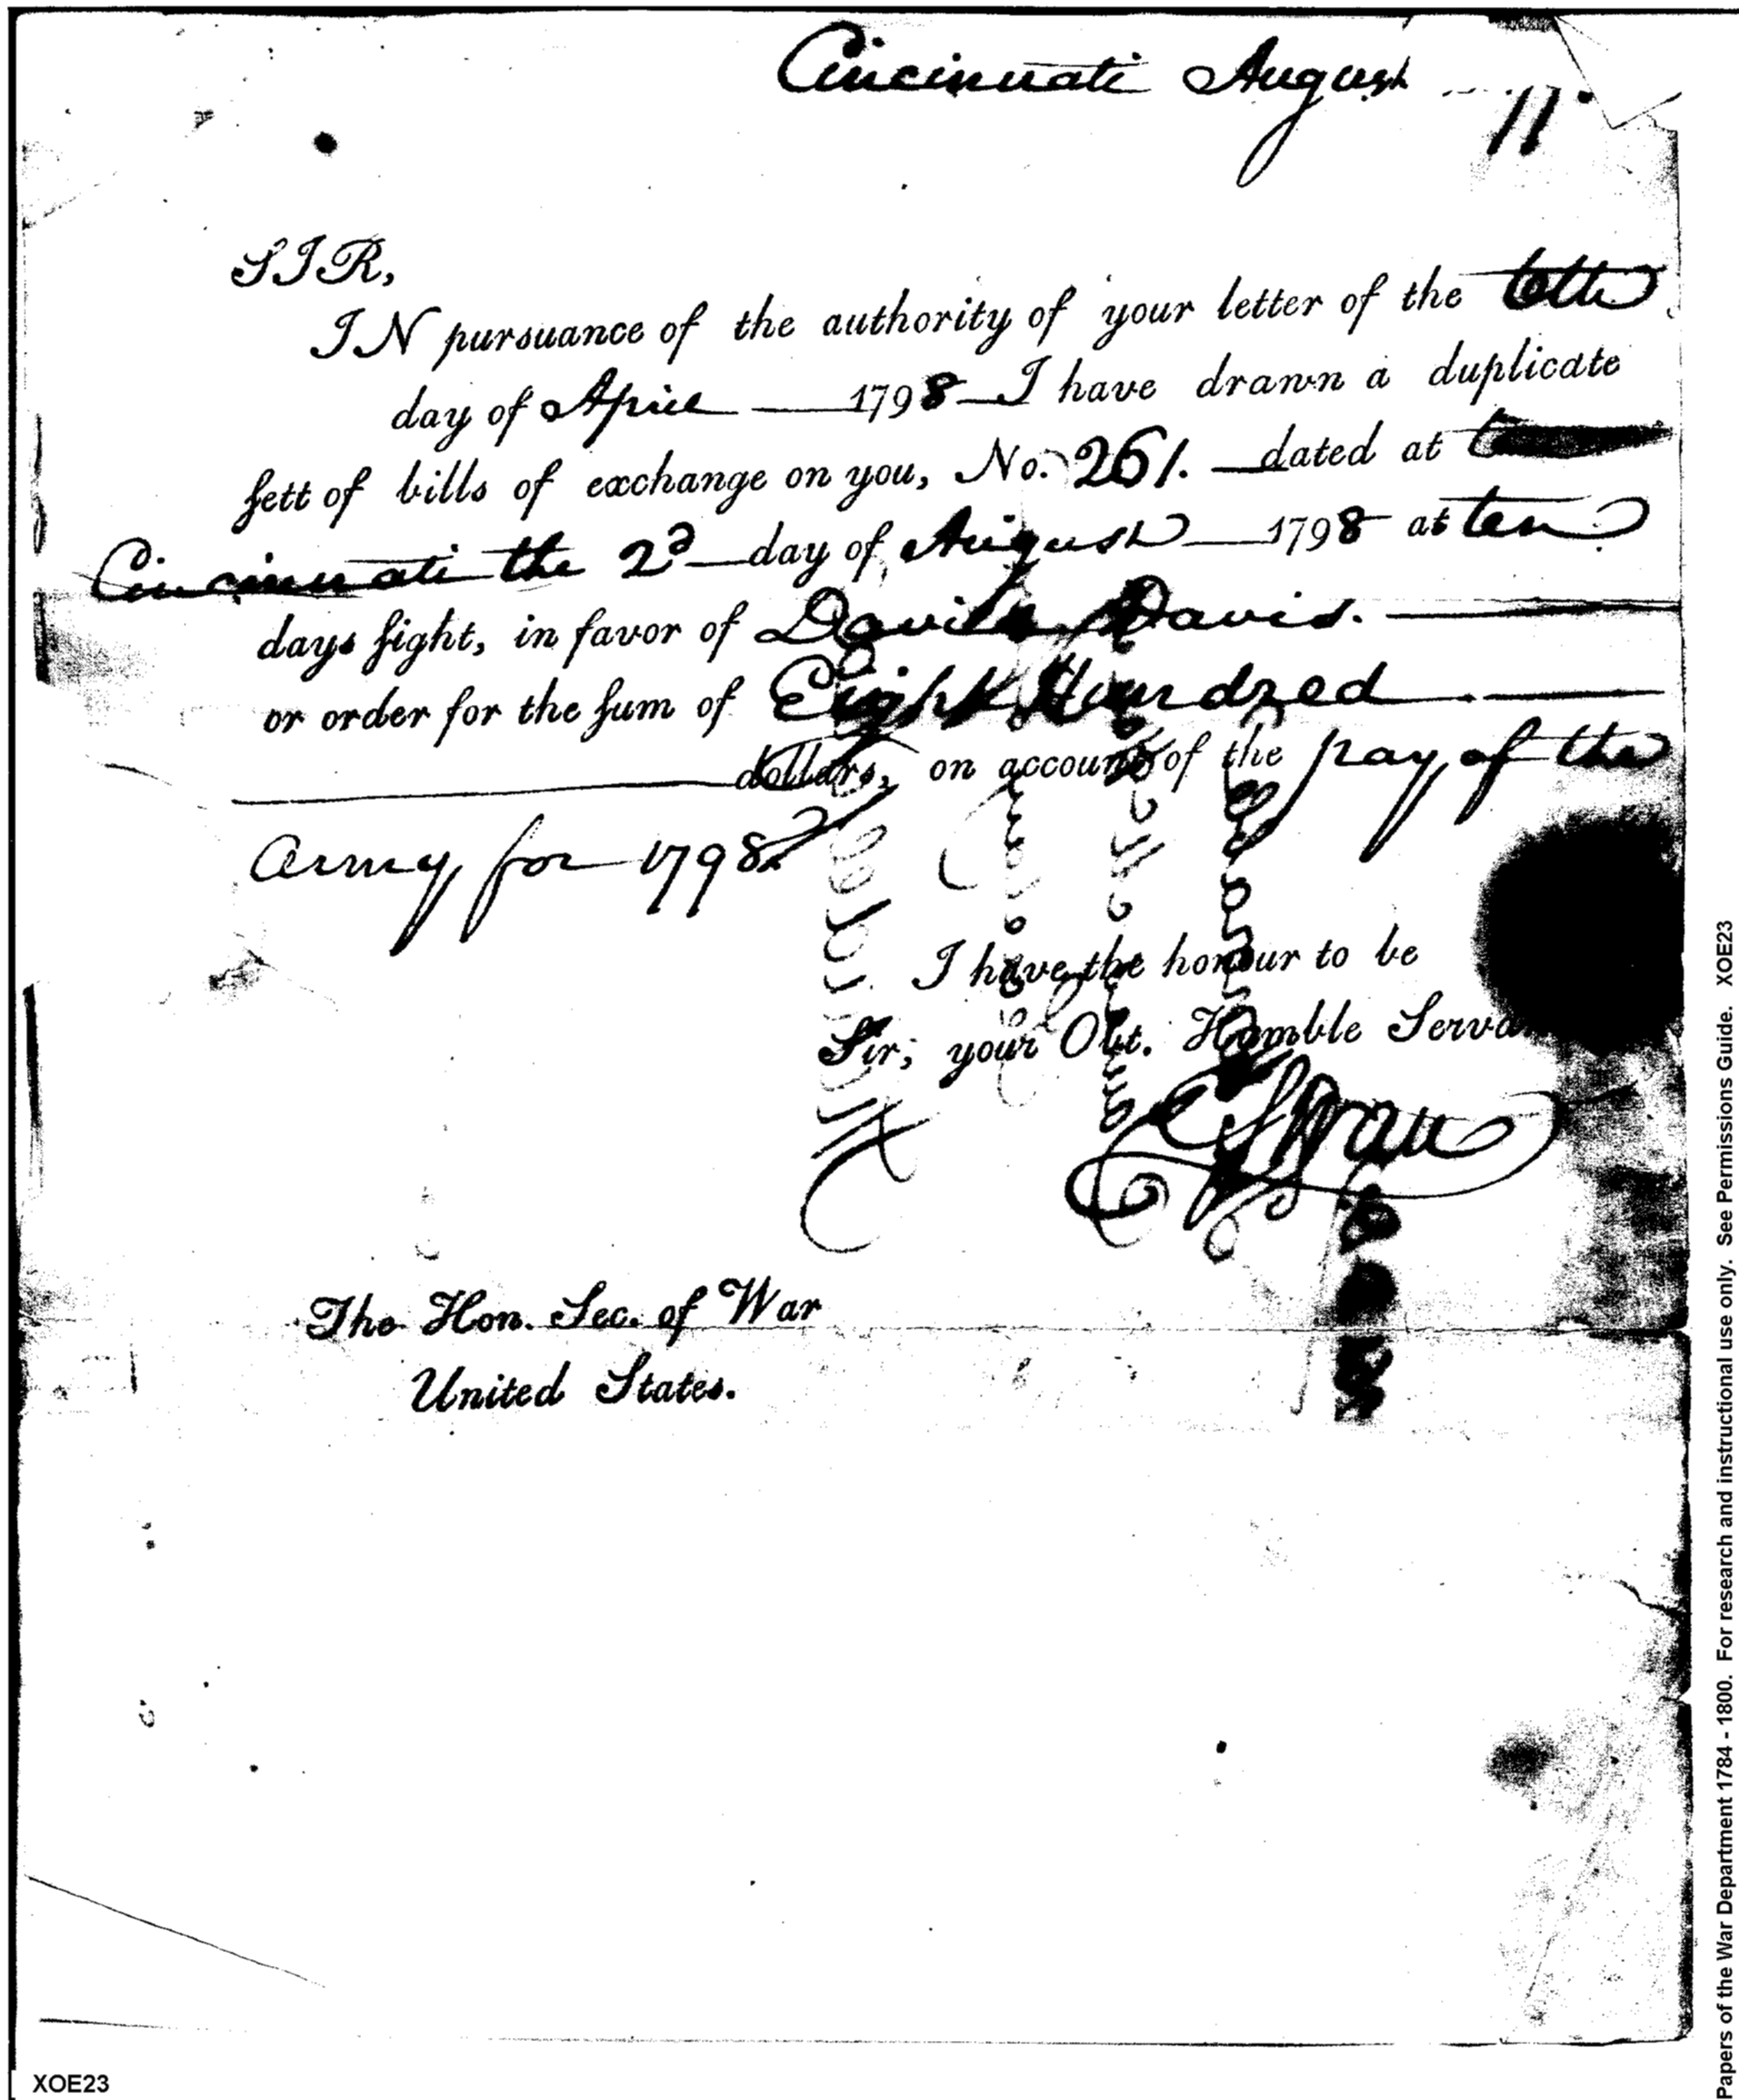 Cincinnati August 11
SIR,
IN pursuance of the authority of your letter of the
day of April 1798 I have drawn a duplicate
sett of bills of exchange on you, No. 261. dated at
Cincinnati the 2d day of August 1798 at ten
days sight, in favor of David Davis.
or order for the sum of Eight Hundred
dollars, on account of the pay of the
Army for 1798
I have the honour to be
Sir; your Obt. Humble Serva
C Swan
The Hon. Sec. of War
United States.
XOE23
Papers of the War Department 1784 - 1800. For research and instructional use only. See Permissions Guide. XOE23